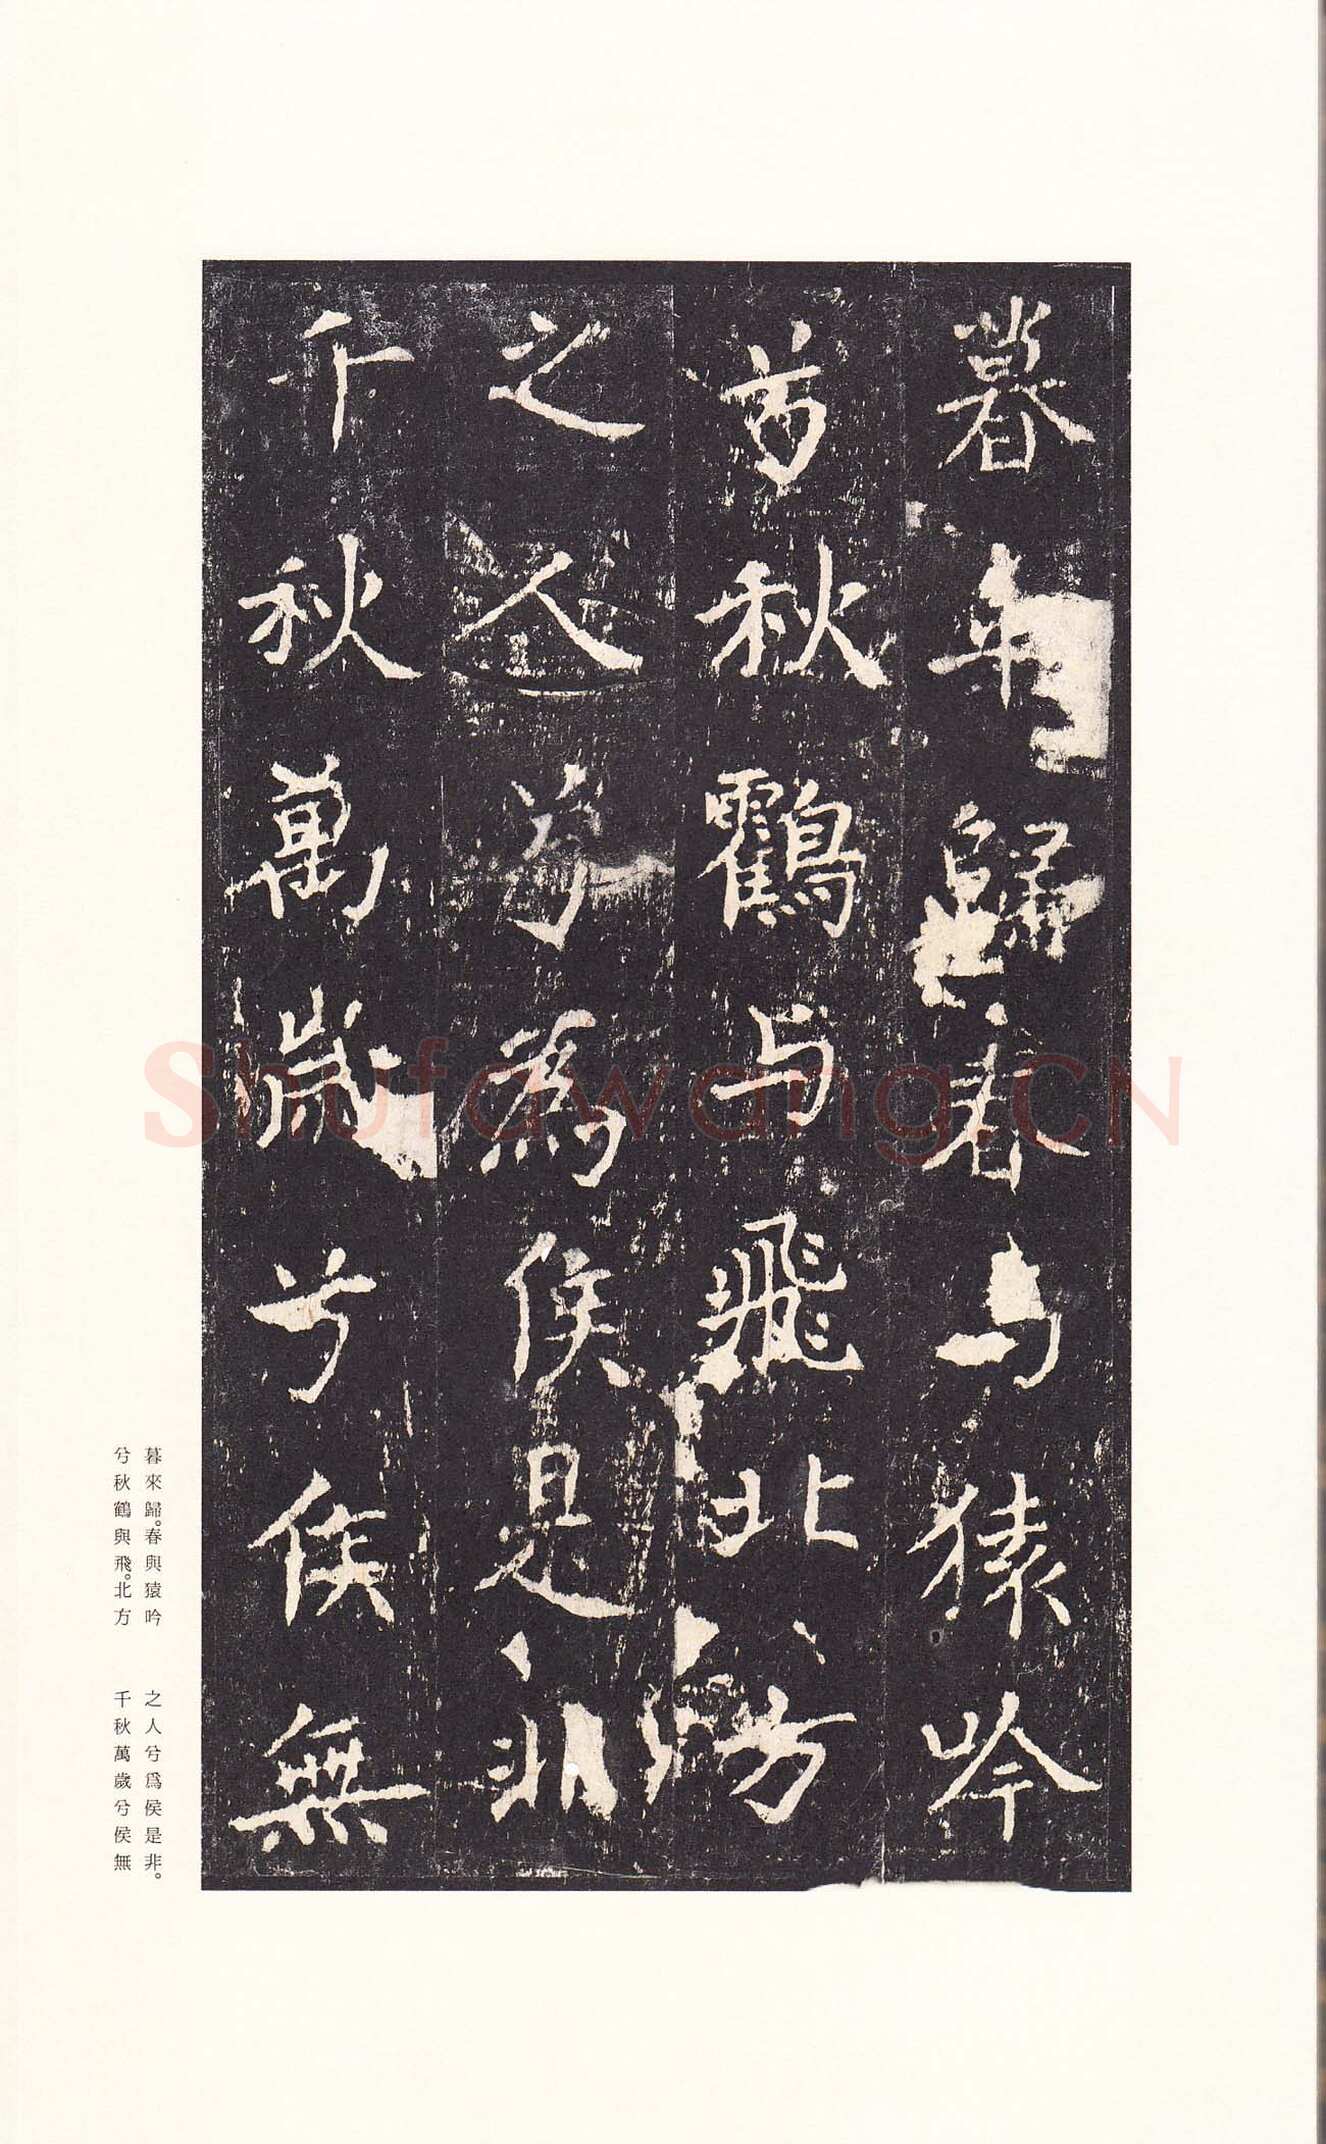 暮来歸春与猿吟
兮秋鶴与飛北方
之人兮為侯是非
千秋萬歲兮侯無
暮來歸。春與猿吟
兮秋鶴與飛。北方
之人兮爲侯是非。
千秋萬歲兮侯無
Shufawang.CN